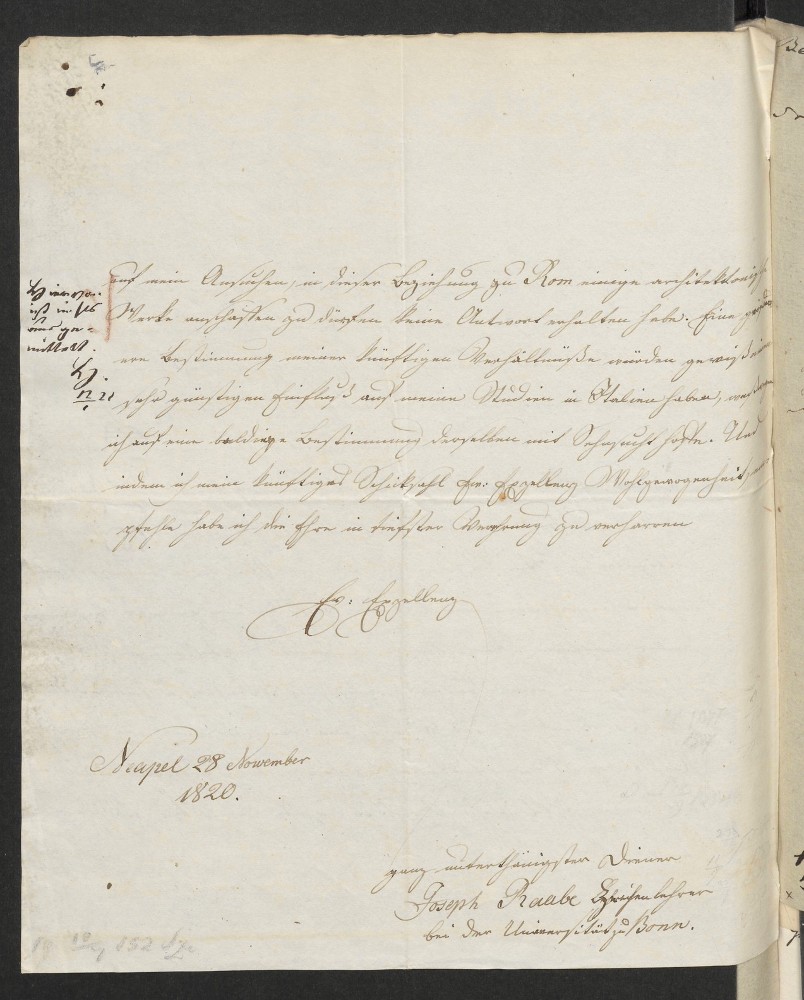 auf mein Ansuchen, in dieser Beziehung zu Rom einige architektonische
Werke anschaffen zu dürfen keine Antwort erhalten habe. Eine
ere Bestimmung meiner künftigen Verhältnisse würden gewiß einen
sehr günstigen Einfluß auf meine Studien in Italien haben,
ich auf eine baldige Bestimmung derselben mit Sehnsucht hoffe. Und
indem ich mein künftiges Schicksahl Ew: Exzellenz Wohlgewogenheit
pfehle habe ich die Ehre in tiefster Verehrung zu verharren
Ew: Exzellenz
Neapel 28 November
1820.
ganz unterthänigster Diener
Joseph Raabe Zeichenlehrer
bei der Universität zu Bonn.